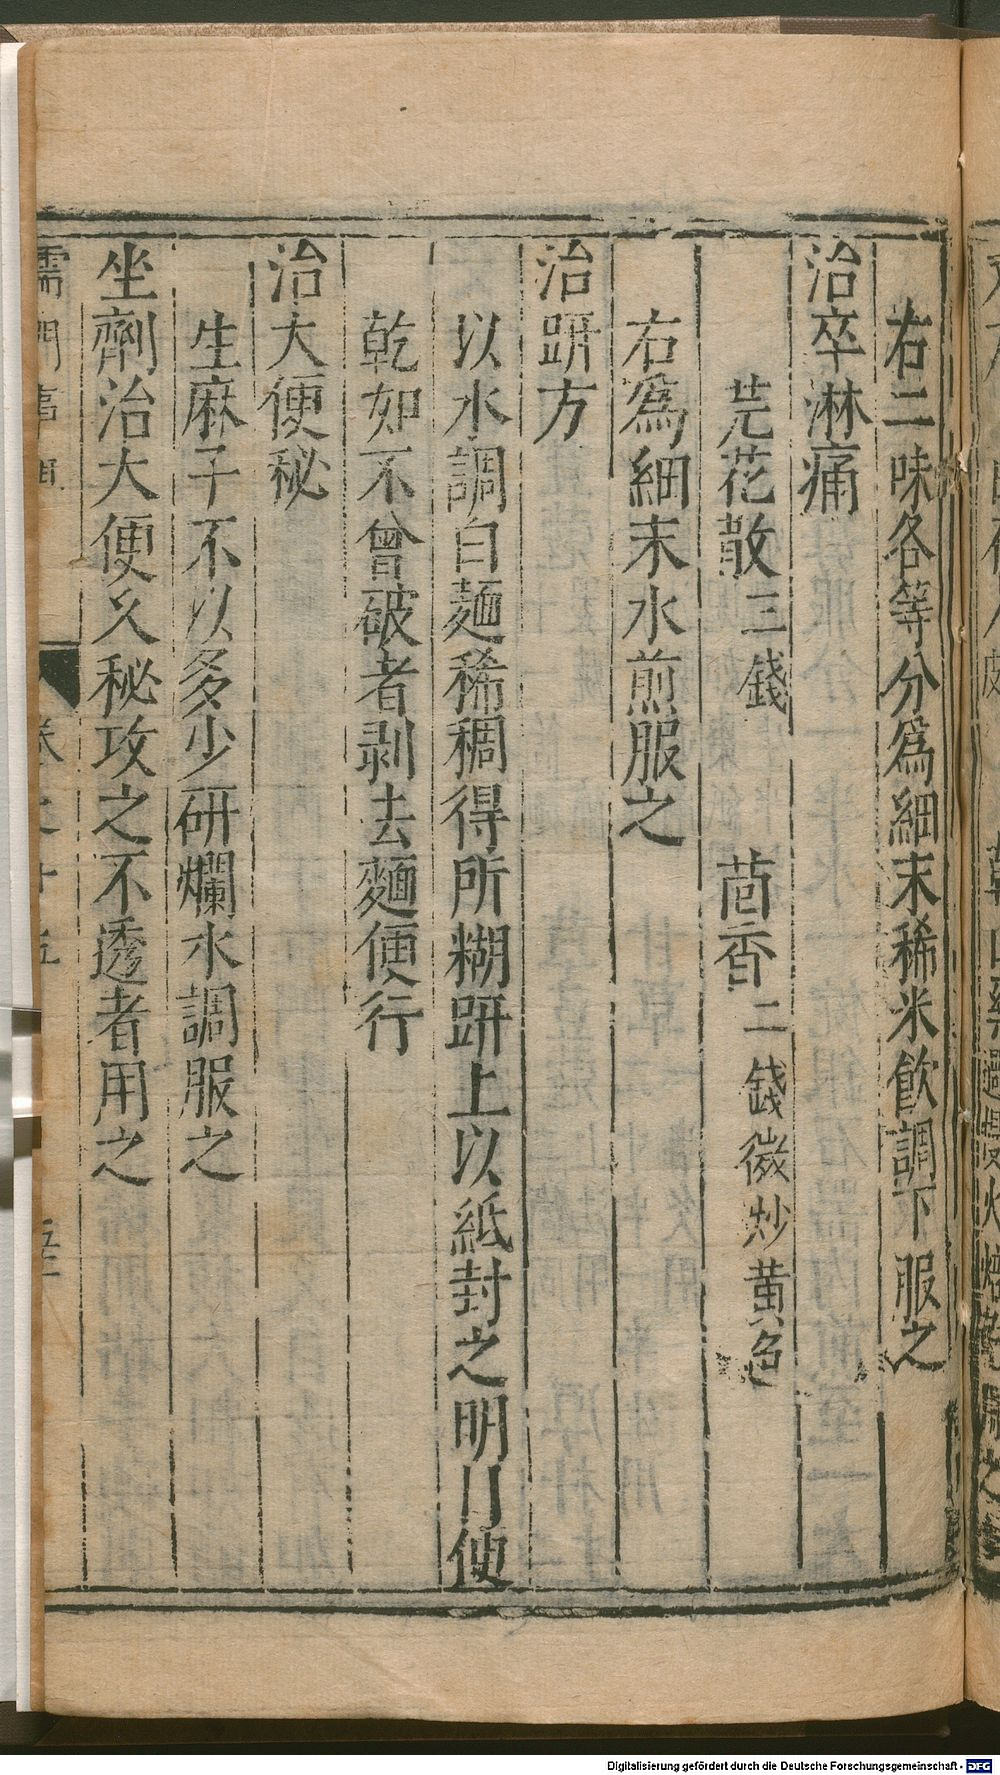 右二味各等分爲細末稀米飲調下服之
治卒淋痛
芫花散三錢 茴香二錢微炒黄色
右爲細末水煎服之
治趼方
以水調白麺稀稠得所糊趼上以紙封之明日便
乾如不曾破者剥去麵便行
治大便秘
生麻子不以多少研爛水調服之
坐劑治大便久秘攻之不透者用之
儒門事親 卷之十五
Digitalisierung gefördert durch die Deutsche Forschungsgemeinschaft - DFG